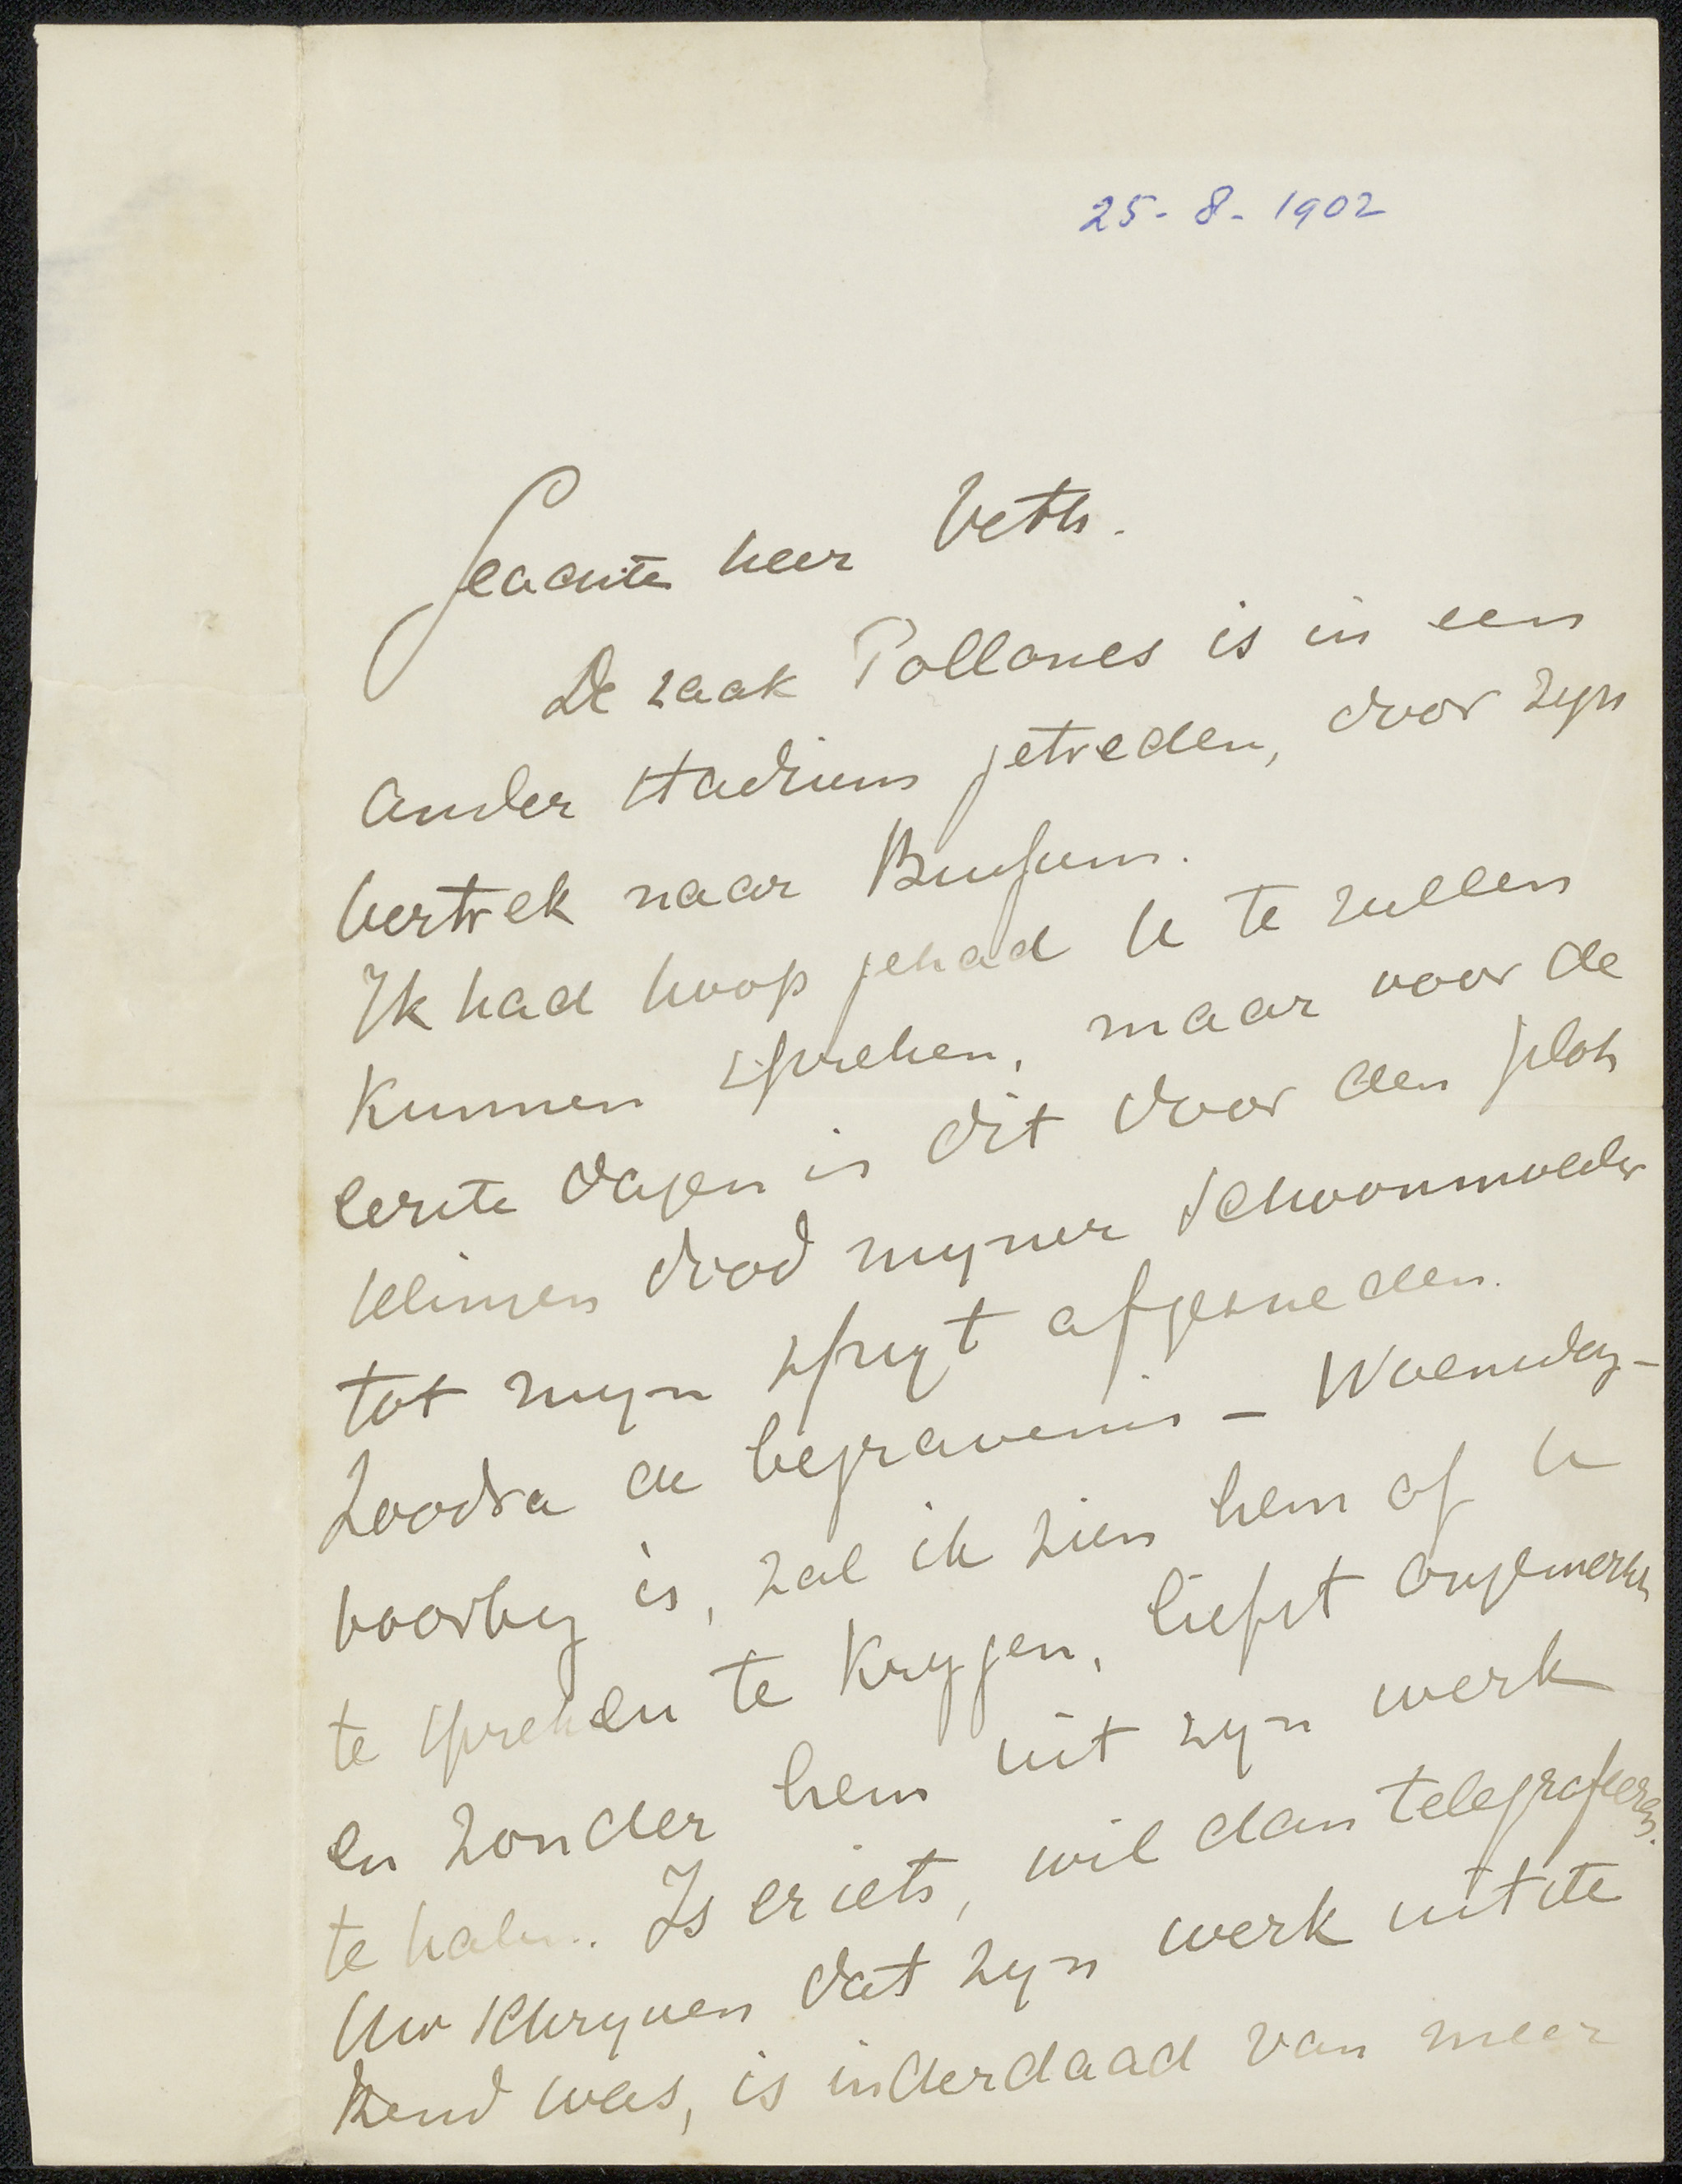 25-8-1902
Geachte heer Veth.
De zaak Pollones is in een
ander stadium getreden, door zyn
vertrek naar Bussum.
Ik had hoop gehad U te zullen
kunnen spreken, maar voor de
eerste dagen is dit door den plots
telingen dood myner schoonmoeder
tot myn spyt afgesneden.
Zoodra de begravenis – Woensdag –
voorby is, zal ik zien hem of U
te spreken te krygen, liefst ongemerkt
en zonder hem uit zyn werk
te halen. Is er iets, wil dan telegrafeeren.
Uw schryven dat zyn werk uitste
kend was, is inderdaad van meer